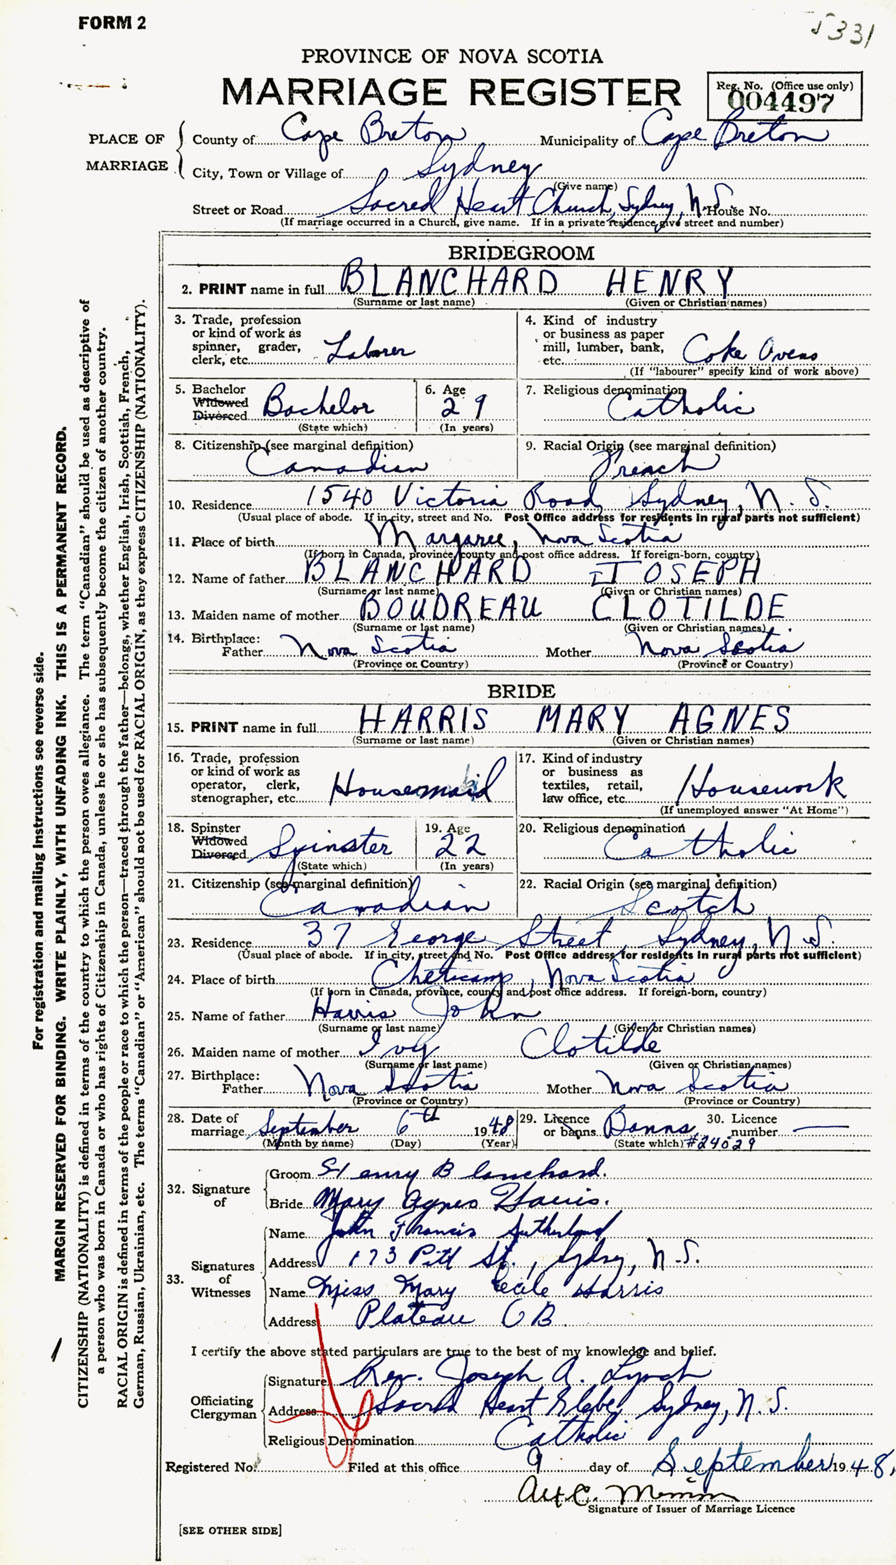 FORM 2
5331
PROVINCE OF NOVA SCOTIA
MARRIAGE REGISTER
Reg. No. (Office use only)
004497
PLACE OF MARRIAGE
County of Cape Breton Municipality of Cape Breton
City, Town or Village of Sydney
(Give name)
Street or Road Sacred Heart Church, Sydney, N.S. House No.
(If marriage occurred in a Church, give name. If in a private residence give street and number)
BRIDEGROOM
2. PRINT name in full BLANCHARD HENRY
(Surname or last name) (Given or Christian names)
3. Trade, profession or kind of work as spinner, grader, clerk, etc. Laborer
4. Kind of industry or business as paper mill, lumber, bank, etc. Coke Ovens
(If "labourer" specify kind of work above)
5. Bachelor Widowed Divorced Bachelor
(State which)
6. Age 29
(In years)
7. Religious denomination Catholic
8. Citizenship (see marginal definition) Canadian
9. Racial Origin (see marginal definition) French
10. Residence 1540 Victoria Road, Sydney, N.S.
(Usual place of abode. If in city, street and No. Post Office address for residents in rural parts not sufficient)
11. Place of birth Margaree, Nova Scotia
(If born in Canada, province, county and post office address. If foreign-born, country)
12. Name of father BLANCHARD JOSEPH
(Surname or last name) (Given or Christian names)
13. Maiden name of mother BOUDREAU CLOTILDE
(Surname or last name) (Given or Christian names)
14. Birthplace:
Father Nova Scotia Mother Nova Scotia
(Province or Country) (Province or Country)
BRIDE
15. PRINT name in full HARRIS MARY AGNES
(Surname or last name) (Given or Christian names)
16. Trade, profession or kind of work as operator, clerk, stenographer, etc. Housemaid
17. Kind of industry or business as textiles, retail, law office, etc. Housework
(If unemployed answer "At Home")
18. Spinster Widowed Divorced Spinster
(State which)
19. Age 22
(In years)
20. Religious denomination Catholic
21. Citizenship (see marginal definition) Canadian
22. Racial Origin (see marginal definition) Scotch
23. Residence 37 George Street, Sydney, N.S.
(Usual place of abode. If in city, street and No. Post Office address for residents in rural parts not sufficient)
24. Place of birth Cheticamp, Nova Scotia
(If born in Canada, province, county and post office address. If foreign-born, country)
25. Name of father Harris John
(Surname or last name) (Given or Christian names)
26. Maiden name of mother Ivy Clotilde
(Surname or last name) (Given or Christian names)
27. Birthplace:
Father Nova Scotia Mother Nova Scotia
(Province or Country) (Province or Country)
28. Date of marriage September 6th 1948
(Month by name) (Day) (Year)
29. Licence or banns Banns
(State which) #24029
30. Licence number —
32. Signature of
Groom Henry Blanchard.
Bride Mary Agnes Harris.
33. Signatures of Witnesses
Name John Francis Sutherland
Address 173 Pitt St., Sydney, N.S.
Name Miss Mary Cecile Harris
Address Plateau CB
I certify the above stated particulars are true to the best of my knowledge and belief.
Officiating Clergyman
Signature Rev. Joseph A. Lynch
Address Sacred Heart Glebe, Sydney, N.S.
Religious Denomination Catholic
Registered No. Filed at this office 9 day of September 1948,
Signature of Issuer of Marriage Licence
[SEE OTHER SIDE]
For registration and mailing instructions see reverse side.
MARGIN RESERVED FOR BINDING. WRITE PLAINLY, WITH UNFADING INK. THIS IS A PERMANENT RECORD.
CITIZENSHIP (NATIONALITY) is defined in terms of the country to which the person owes allegiance. The term "Canadian" should be used as descriptive of
a person who was born in Canada or who has rights of Citizenship in Canada, unless he or she has subsequently become the citizen of another country.
RACIAL ORIGIN is defined in terms of the people or race to which the person—traced through the father—belongs, whether English, Irish, Scottish, French,
German, Russian, Ukrainian, etc. The terms "Canadian" or "American" should not be used for RACIAL ORIGIN, as they express CITIZENSHIP (NATIONALITY).